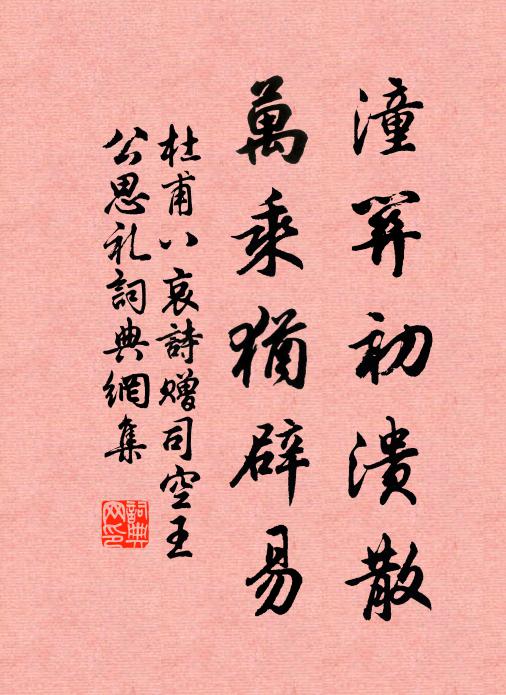 潼關初潰散
萬乘猶辟易
杜甫八哀詩贈司空王
公思礼詞典網集
詞典网印